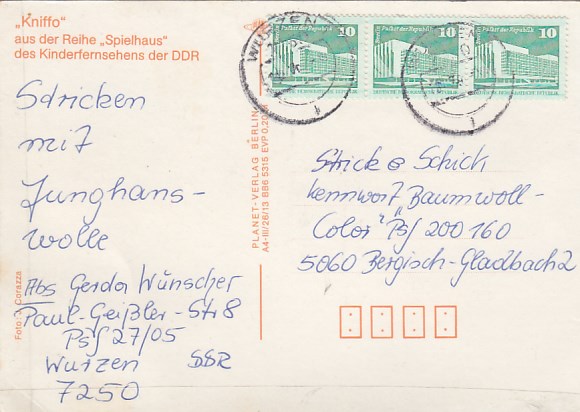 „Kniffo"
aus der Reihe „Spielhaus"
des Kinderfernsehens der DDR
Stricken
mit
Junghans-
wolle
Abs Gerda Wünscher
Paul-Geißler-Str 8
Psf 27/05
Wurzen DDR
7250
Foto: Carazza
PLANET-VERLAG BERLIN
A4-III/26/13 BB6 5315 EVP 0,20
WURZEN
1
10 Palast der Republik
DEUTSCHE DEMOKRATISCHE REPUBLIK
Palast der Republik 10
DEUTSCHE DEMOKRATISCHE REPUBLIK
Palast der Republik 10
DEUTSCHE DEMOKRATISCHE REPUBLIK
1
Strick & Schick
Kennwort „Baumwoll-
Color" Psf 200 160
5060 Bergisch-Gladbach 2